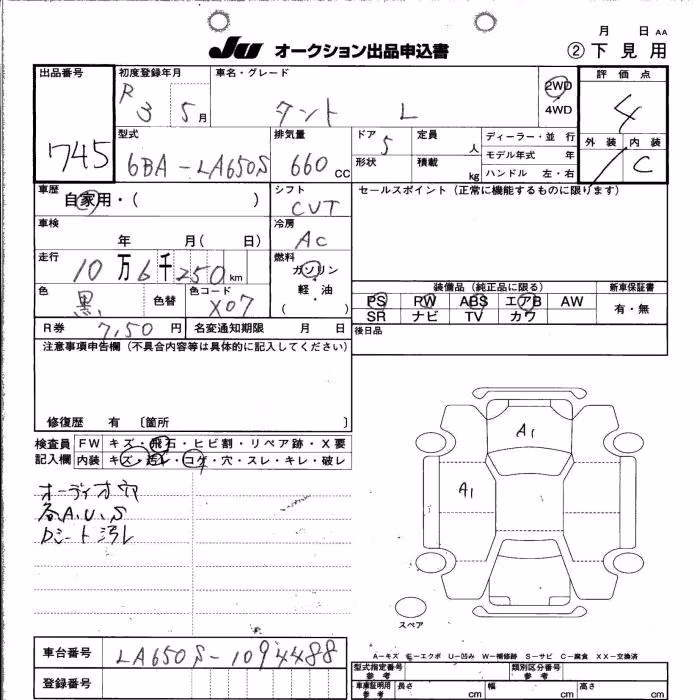 月 日 AA
JU オークション出品申込書 ②下見用
出品番号 初度登録年月 車名・グレード 評価点
R 3 5月 タント L 2WD 4WD 4
745
型式 排気量 ドア 定員 ディーラー・並行 外装 内装
6BA-LA650S 660cc 5 人 モデル年式 年 C
形状 積載 kg ハンドル 左・右
車歴 シフト セールスポイント(正常に機能するものに限ります)
自家用・( ) CVT
車検 冷房
年 月( 日) AC
走行 燃料
10万6千250km ガソリン
軽・油
( )
色 色替 色コード
黒 X07
装備品(純正品に限る) 新車保証書
PS PW ABS エアB AW 有・無
SR ナビ TV カワ
R券 7,50円 名変通知期限 月 日 後日品
注意事項申告欄(不具合内容等は具体的に記入してください)
修復歴 有 〔箇所 〕
検査員 FW キズ・飛石・ヒビ割・リペア跡・X要
記入欄 内装 キズ・汚レ・コゲ・穴・スレ・キレ・破レ
オーディオ穴
各A.U.S
Dシート汚レ
A1
A1
スペア
A-キズ E-エクボ U-凹み W-補修跡 S-サビ C-腐食 XX-交換済
車台番号 LA650S-1094488
登録番号
型式指定番号 参考 類別区分番号 参考
車庫証明用 参考 長さ cm 幅 cm 高さ cm